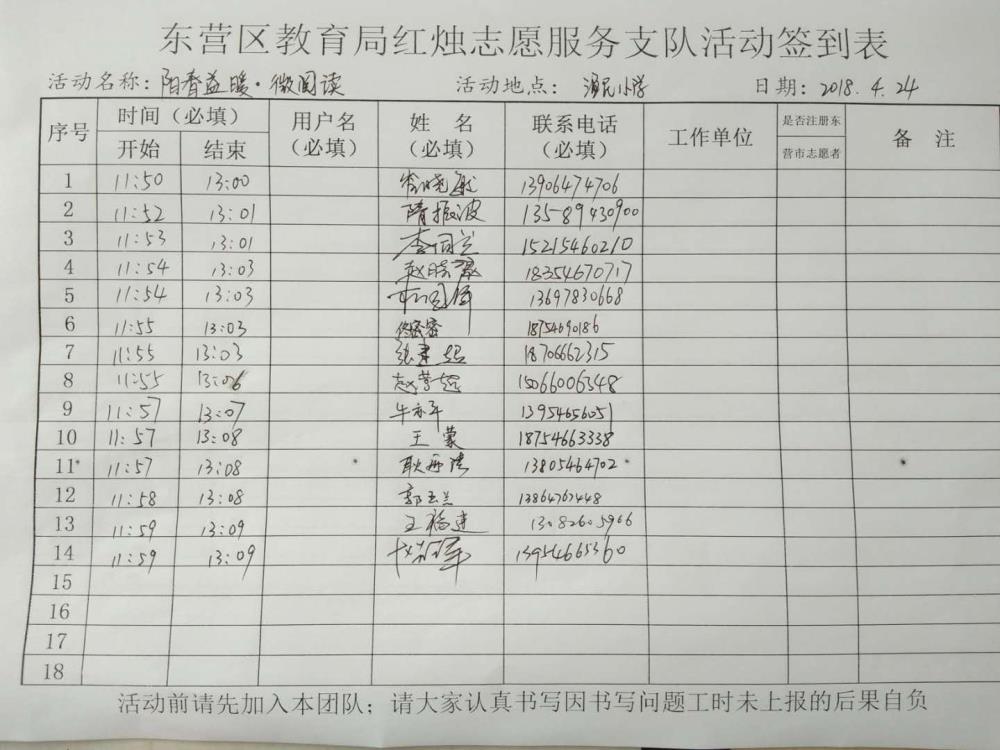 东营区教育局红烛志愿服务支队活动签到表
活动名称：阳春益暖·微阅读 活动地点： 小学 日期：2018.4.24
序号 时间（必填） 用户名（必填） 姓 名（必填） 联系电话（必填） 工作单位 是否注册东营市志愿者 备 注
开始 结束
1 11:50 13:00 13906474706
2 11:52 13:01 隋振波 13589430900
3 11:53 13:01 15215460210
4 11:54 13:03 18354670717
5 11:54 13:03 13697830668
6 11:55 13:03 18754690186
7 11:55 13:03 18706662315
8 11:55 13:06 15066006348
9 11:57 13:07 13954656051
10 11:57 13:08 王蒙 18754663338
11 11:57 13:08 13805464702
12 11:58 13:08 郭玉兰 13864767448
13 11:59 13:09 王福建 13082605966
14 11:59 13:09 13954665360
15
16
17
18
活动前请先加入本团队；请大家认真书写因书写问题工时未上报的后果自负